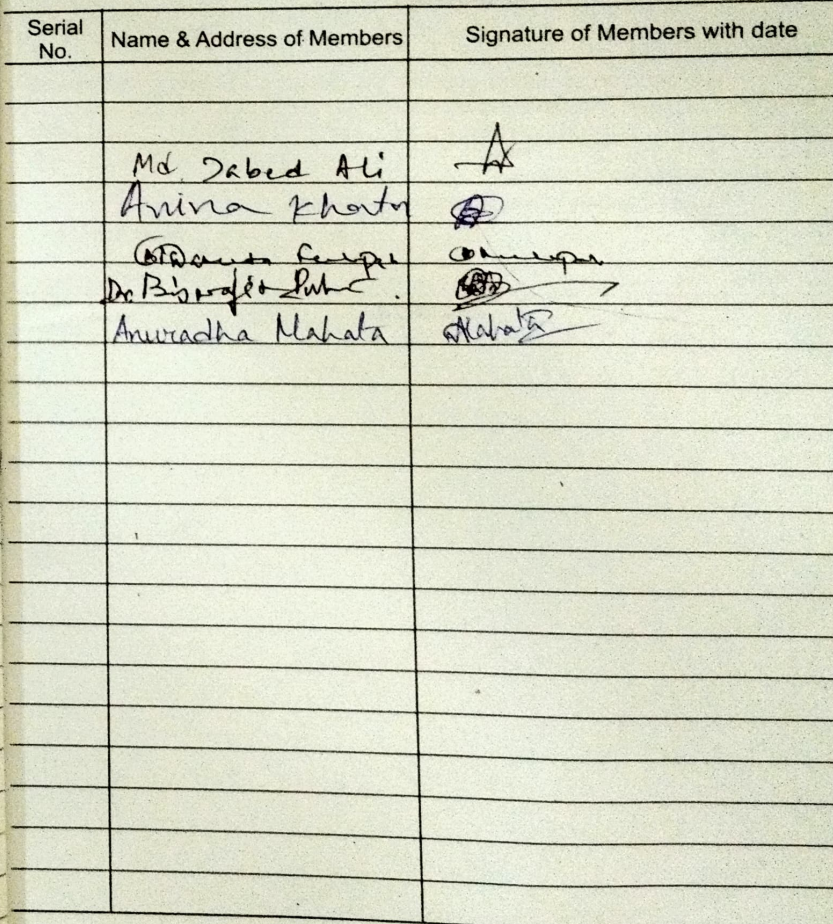 Serial No. Name & Address of Members Signature of Members with date
Md Jabed Ali
Anina Khatn
Dr. Biswajit
Anuradha Mahata Mahata